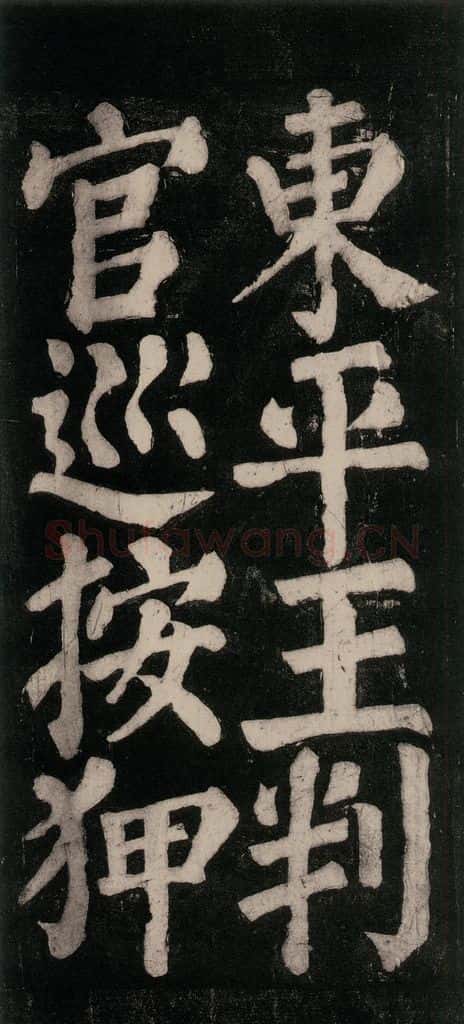 東平王判
官巡按狎
Shufawang.CN